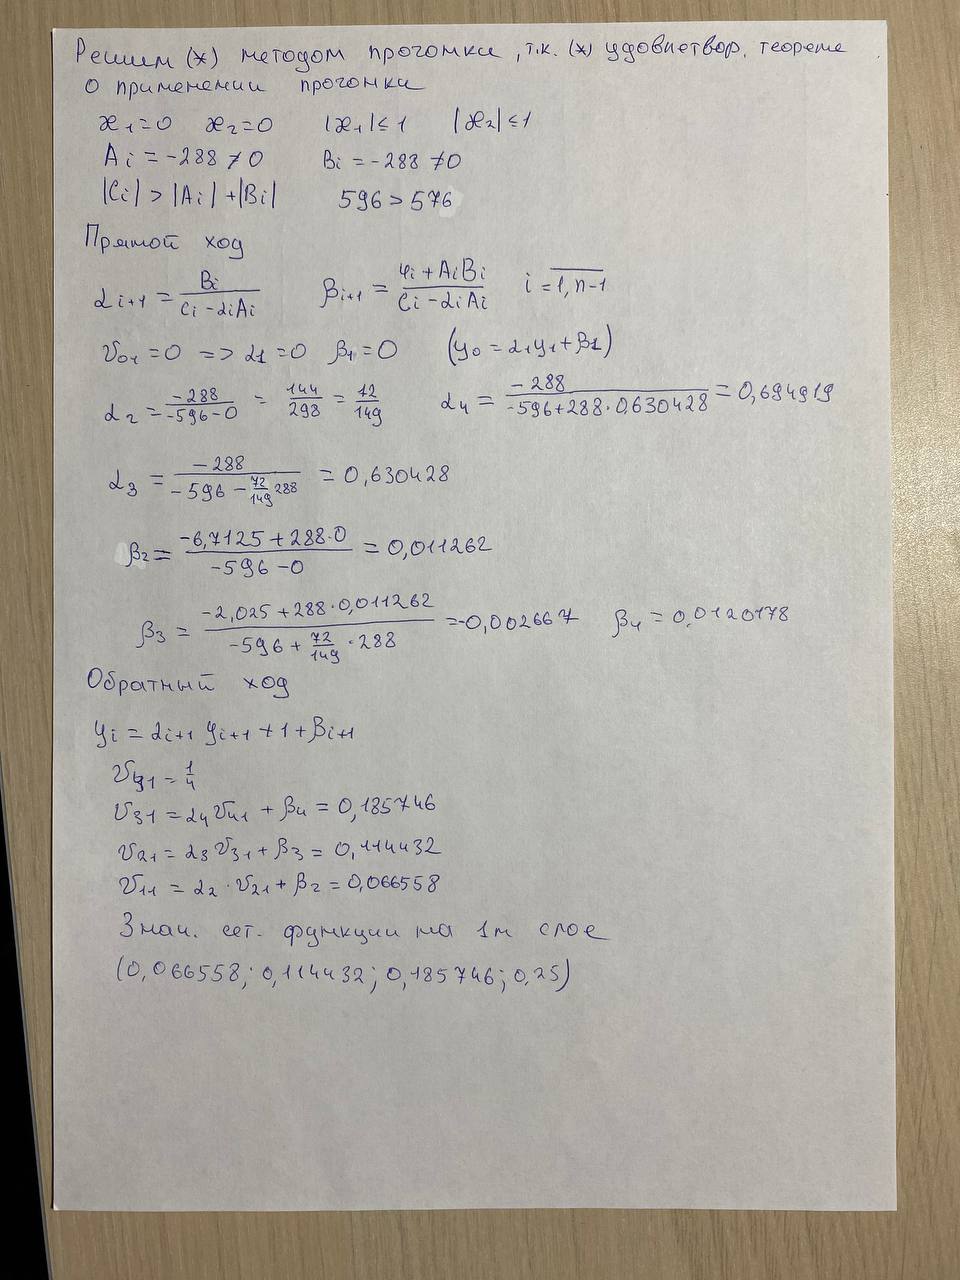 Решим (*) методом прогонки, т.к. (*) удовлетвор. теореме
о применении прогонки
æ₁=0 æ₂=0 |æ₁|≤1 |æ₂|≤1
Ai = -288 ≠0 Bi = -288 ≠0
|Ci| > |Ai| + |Bi| 596 > 576
Прямой ход
αi+1 = Bi / (Ci - αiAi) βi+1 = (φi + AiBi) / (Ci - αiAi) i = 1, n-1
v₀₁ = 0 => α₁ = 0 β₁ = 0 (y₀ = α₁y₁ + β₁)
α₂ = -288 / (-596 - 0) = 144/298 = 72/149 α₄ = -288 / (-596 + 288 · 0,630428) = 0,694919
α₃ = -288 / (-596 - 72/149 288) = 0,630428
β₂ = (-6,7125 + 288·0) / (-596 - 0) = 0,011262
β₃ = (-2,025 + 288·0,011262) / (-596 + 72/149 · 288) = -0,002667 β₄ = 0,0120178
Обратный ход
yi = αi+1 yi+1 + 1 + βi+1
v₄₁ = 1/4
v₃₁ = α₄v₄₁ + β₄ = 0,185746
v₂₁ = α₃v₃₁ + β₃ = 0,114432
v₁₁ = α₂ · v₂₁ + β₂ = 0,066558
Знач. сет. функции на 1м слое
(0,066558; 0,114432; 0,185746; 0,25)